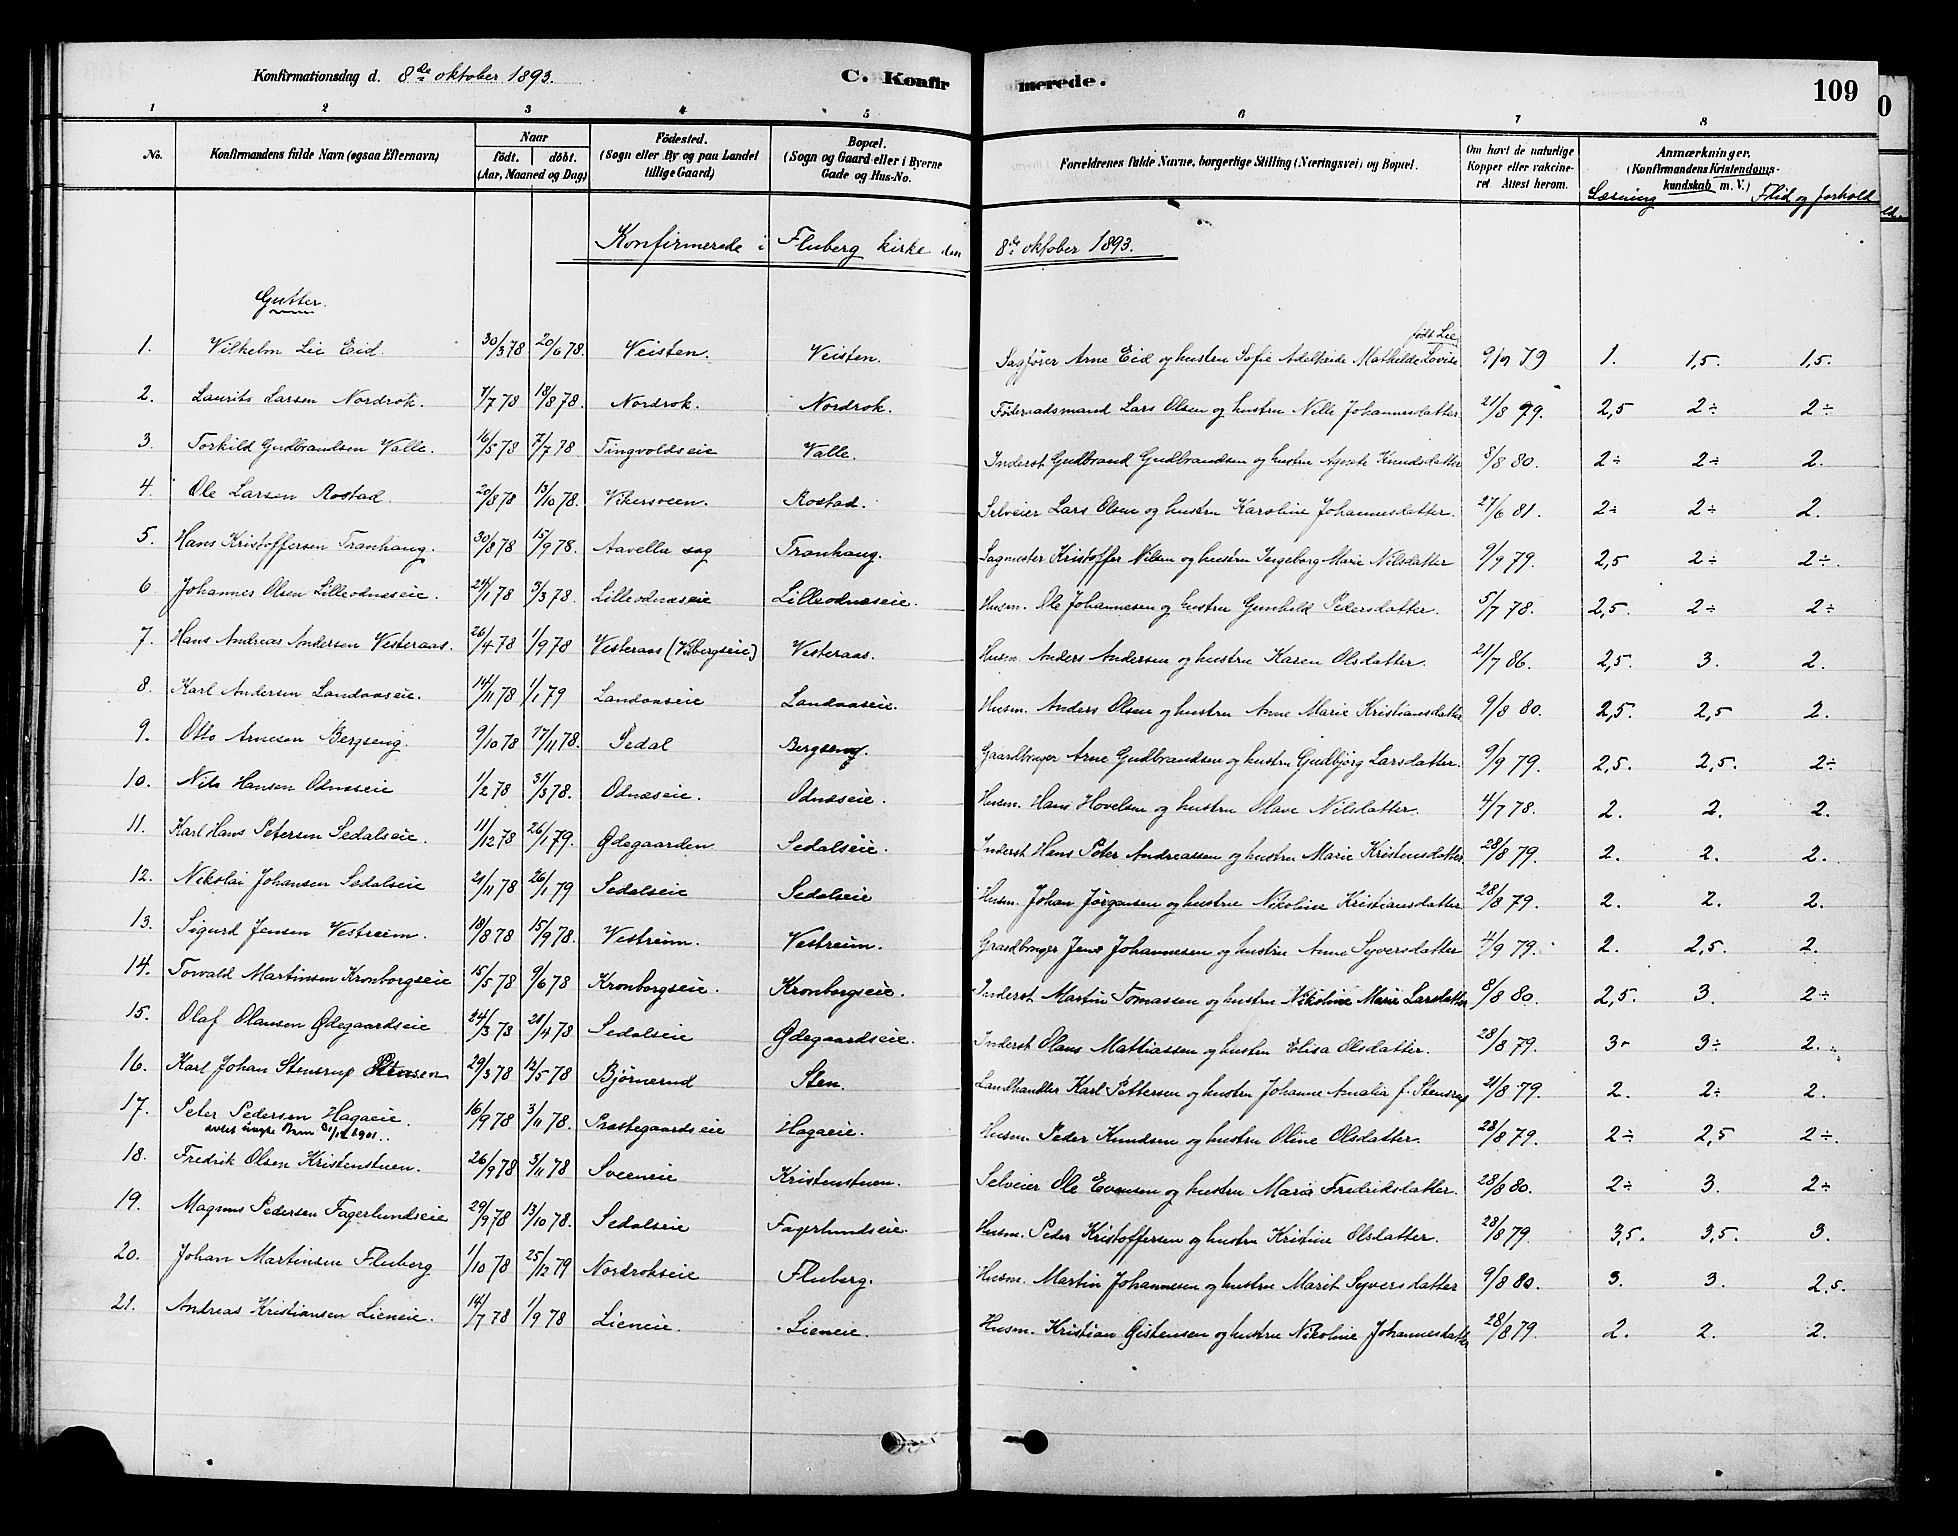 Konfirmationsdag d. 8de oktober 1893. C. Konfirmerede. 109
1 2 3 4 5 6 7 8
No. Konfirmandens fulde Navn (ogsaa Efternavn) Naar födt. döbt. (Aar, Maaned og Dag) Födested. (Sogn eller By og paa Landet tillige Gaard) Bopæl. (Sogn og Gaard eller i Byerne Gade og Hus-No. Forældrenes fulde Navne, borgerlige Stilling (Næringsvei) og Bopæl. Om havt de naturlige Kopper eller vakcineret. Attest herom. Anmærkninger. (Konfirmandens Kristendomskundskab m. V.) Læsning Flid og forhold
Konfirmerede i Fluberg kirke den 8de oktober 1893.
Gutter.
1. Vilhelm Lie Eid. 30/3 78 20/6 78. Veisten. Veisten. Sagfører Arne Eid og hustru Sofie Adelheide Mathilde Lovise født Lie 9/9 79 1. 1,5 1,5.
2. Laurits Larsen Nordrok. 7/7 78 18/8 78. Nordrok. Nordrok. Føderaadsmand Lars Olsen og hustru Nille Johannesdatter 21/8 79. 2,5 2÷ 2÷
3. Torkild Gudbrandsen Valle. 16/5 78 7/7 78 Tingvoldseie Valle. Inderst Gudbrand Gudbrandsen og hustru Agate Knudsdatter 8/8 80. 2÷ 2÷ 2.
4. Ole Larsen Rostad. 20/8 78 13/10 78. Vikersveen. Rostad. Selveier Lars Olsen og hustru Karoline Johannesdatter. 27/6 81. 2÷ 2÷ 2.
5. Hans Kristoffersen Tranhaug. 30/8 78 15/9 78. Aavella sag Tranhaug. Sagmester Kristoffer Nilsen og hustru Ingeborg Marie Nilsdatter 9/9 79. 2,5 2÷ 2÷.
6. Johannes Olsen Lilleodnæseie. 24/1 78 3/3 78. Lilleodnæseie Lilleodnæseie. Husm. Ole Johannesen og hustru Gunhild Pedersdatter. 5/7 78. 2,5. 2÷ 2÷
7. Hans Andreas Andersen Vesteraas. 26/4 78 1/9 78 Vesteraas (Vibergseie) Vesteraas. Husm. Anders Andersen og hustru Karen Olsdatter. 21/7 86. 2,5. 3. 2.
8. Karl Andersen Landaaseie. 14/11 78 1/1 79 Landaaseie Landaaseie. Husm. Anders Olsen og hustru Anne Marie Kristiansdatter 9/8 80. 2,5. 2,5 2.
9. Otto Arnesen Bergseng. 9/10 78 17/11 78. Sedal Bergseng. Gaardbruger Arne Gudbrandsen og hustru Gudbjørg Larsdatter. 9/9 79. 2,5. 2,5. 2÷
10. Nils Hansen Odnæseie 1/2 78 31/3 78. Odnæseie. Odnæseie. Husm. Hans Hovelsen og hustru Olave Nilsdatter. 4/7 78. 2. 2. 2.
11. Karl Hans Petersen Sedalseie. 11/12 78 26/1 79. Ødegaarden Sedalseie. Inderst Hans Peter Andreassen og hustru Marie Kristensdatter 28/8 79. 2. 2. 2.
12. Nikolai Johansen Sedalseie 21/11 78 26/1 79 Sedalseie Sedalseie Husm. Johan Jørgensen og hustru Nikoline Kristiansdatter 28/8 79. 2. 2. 2.
13. Sigurd Jensen Vestreim. 18/8 78 15/9 78. Vestreim. Vestreim. Gaardbruger Jens Johannesen og hustru Anne Syversdatter 4/9 79. 2. 2,5. 2.
14. Torvald Martinsen Kronborgseie 15/5 78 9/6 78 Kronborgseie. Kronborgseie. Inderst Martin Tomassen og hustru Nikoline Marie Larsdatter 8/8 80. 2,5. 3. 2÷
15. Olaf Olausen Ødegaardseie 24/3 78 21/4 78 Sedalseie Ødegaardseie. Inderst Olaus Mattiassen og hustru Elisa Olsdatter. 28/8 79. 3÷ 3÷ 2.
16. Karl Johan Stensrup 29/3 78 12/5 78 Bjørnerud Sten. Landhandler Karl Pettersen og hustru Johanne Amalia f. Stensrup 21/8 79. 2. 2÷ 2.
17. Peter Pedersen Hagaeie. 16/9 78 3/11 78. Præstegaardseie Hagaeie. Husm. Peder Knudsen og hustru Oline Olsdatter. 28/8 79. 2÷ 2,5 2÷.
18. Fredrik Olsen Kristenstuen. 26/9 78 3/11 78 Sveeneie Kristenstuen. Selveier Ole Evensen og hustru Maria Fredriksdatter. 28/8 80. 2÷ 3. 2÷
19. Magnus Pedersen Fagerlundseie 29/9 78 13/10 78. Sedalseie Fagerlundseie. Husm. Peder Kristoffersen og hustru Kristine Olsdatter. 28/8 79. 3,5. 3,5. 3.
20. Johan Martinsen Fluberg 1/10 78 25/12 79 Nordrokseie Fluberg. Husm. Martin Johannesen og hustru Marit Syversdatter 9/8 80. 3. 3. 2,5.
21. Andreas Kristiansen Lieneie. 14/7 78 1/9 78 Lieneie. Lieneie. Husm. Kristian Gistensen og hustru Nikoline Johannesdatter 28/8 79. 2. 2. 2.